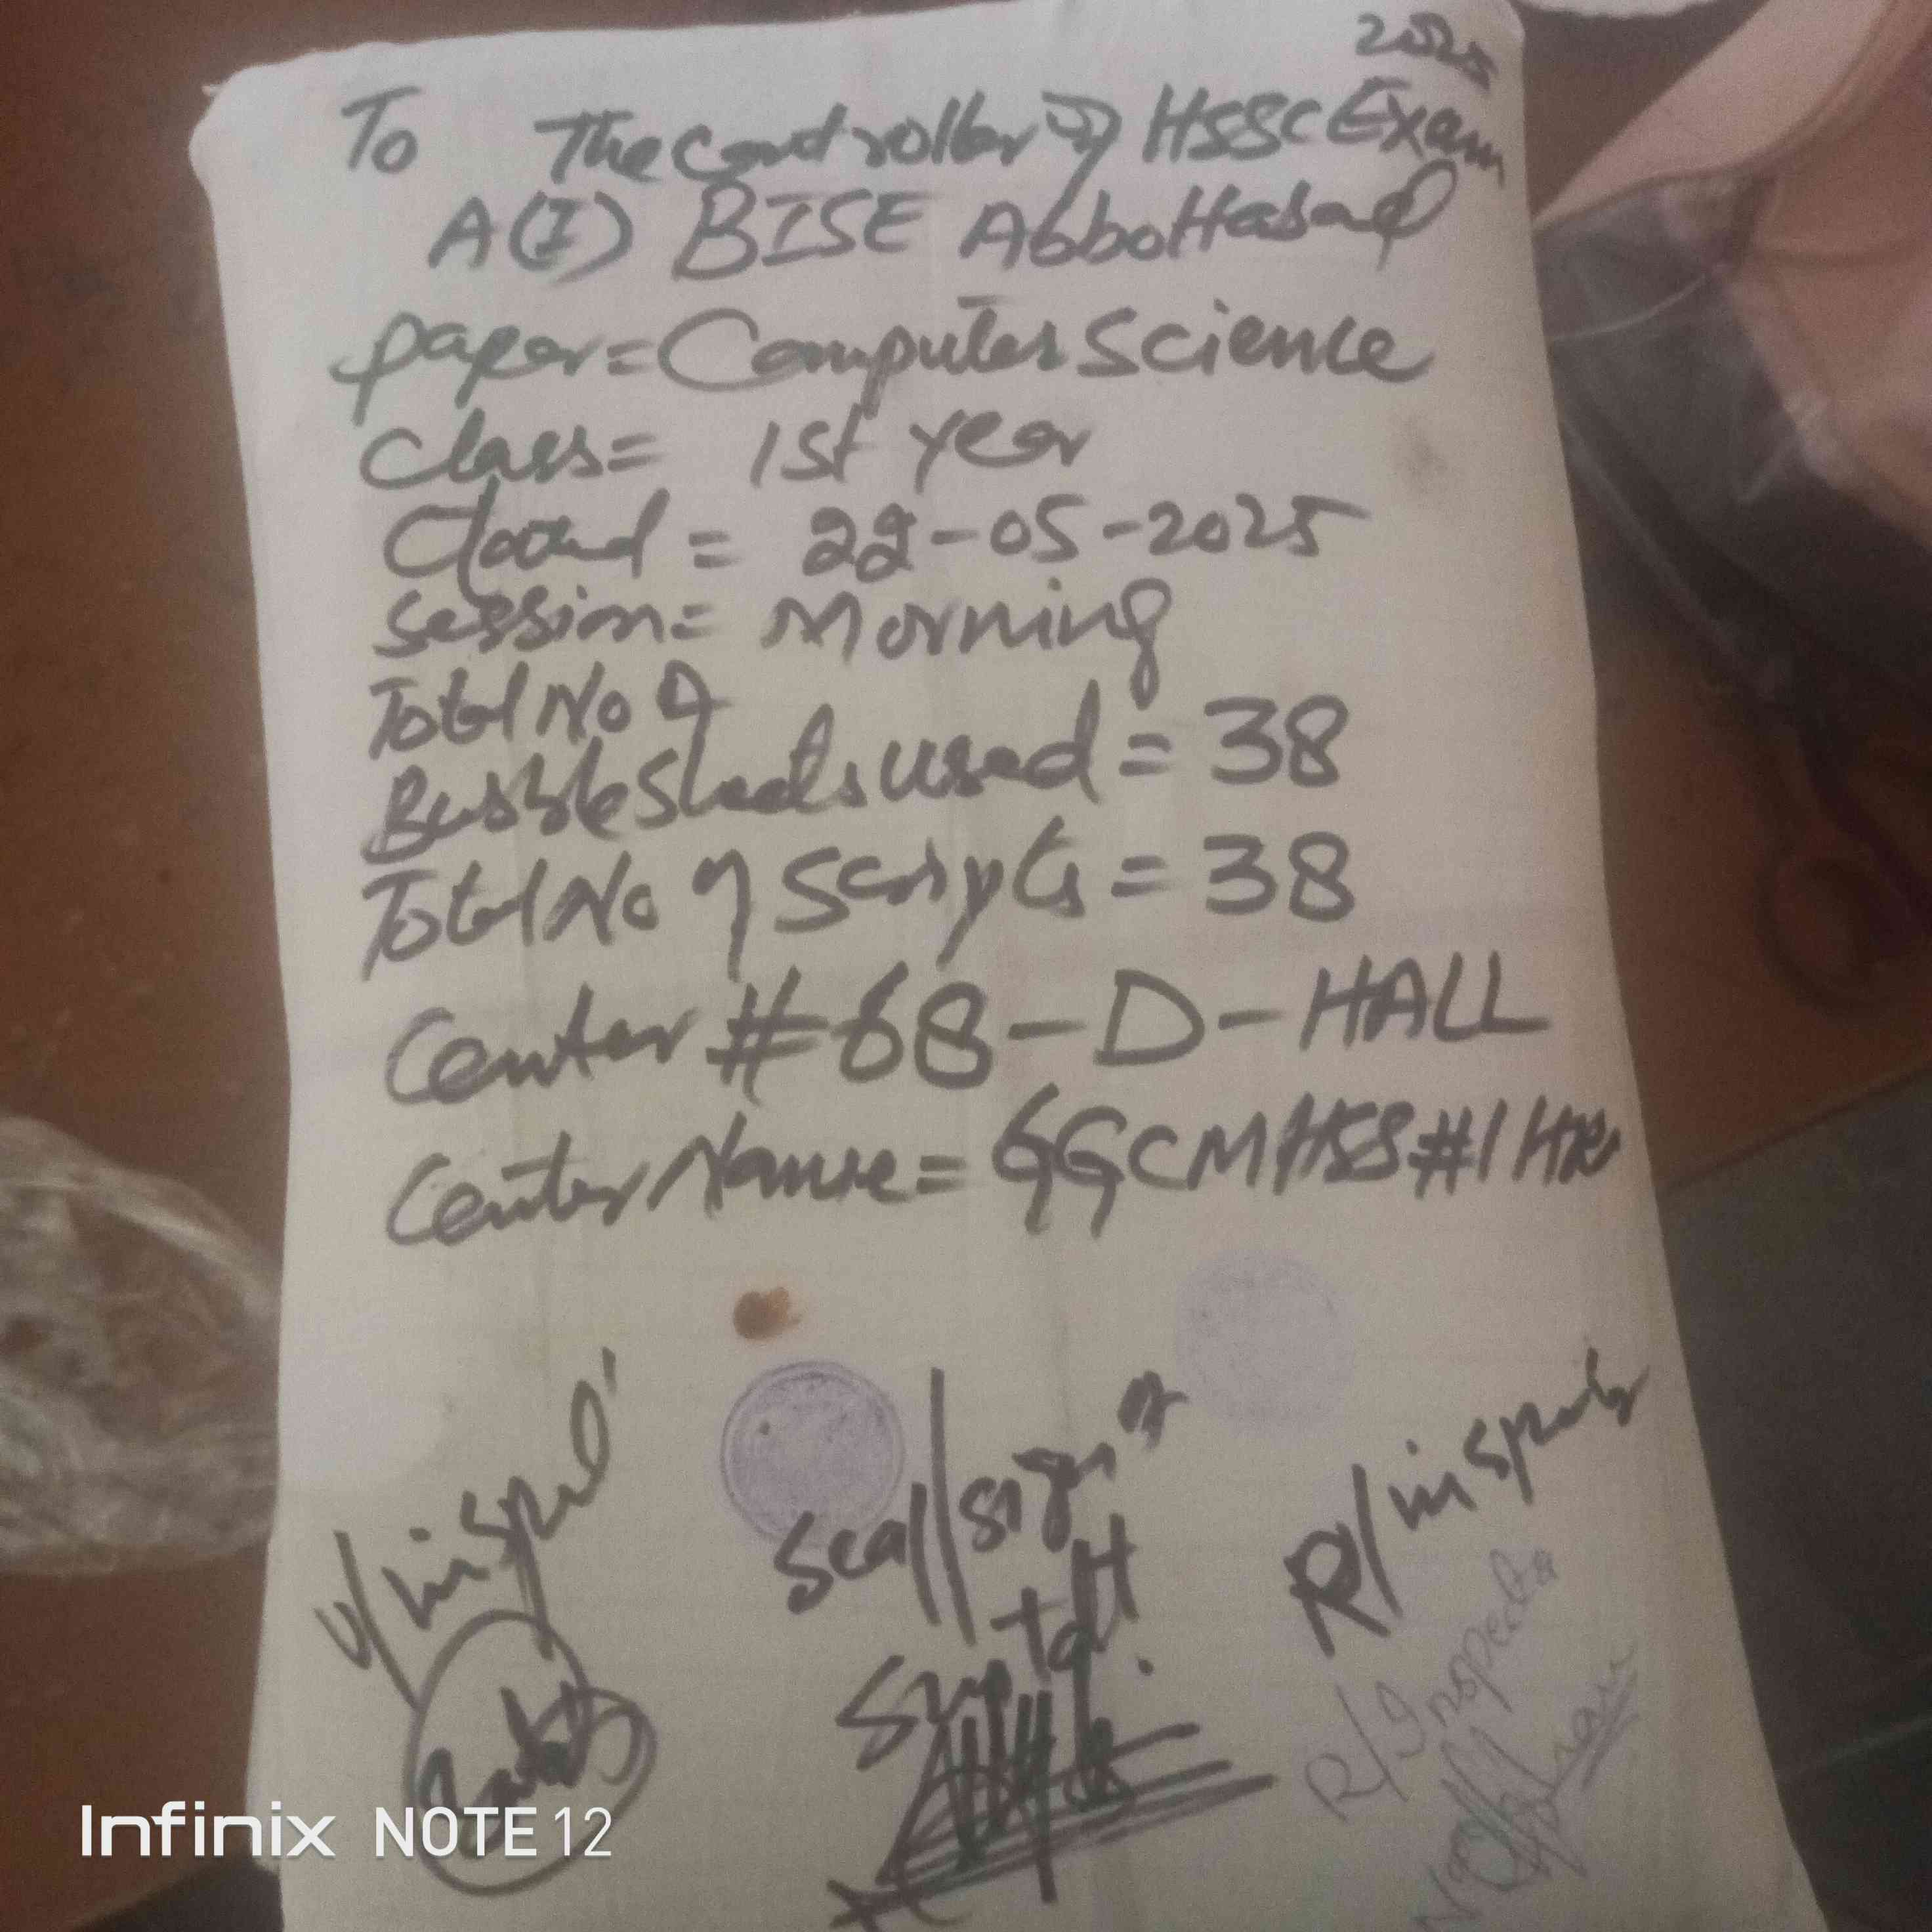 2025
To The Controller of HSSC Exam
A(I) BISE Abbottabad
paper = Computer Science
Class = 1st year
dated = 22-05-2025
Session = Morning
Total No of
Bubble Sheets used = 38
Total No of Scripts = 38
Center # 68 - D - HALL
Center Name = GGCMHSS #1 HR
Seal/sign of
Suptdtt.
R/Inspector
R/Inspector
Infinix NOTE 12